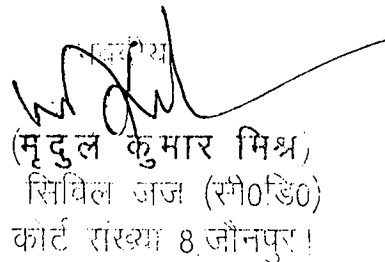 भवदीय
(मृदुल कुमार मिश्र)
सिविल जज (सी0डि0)
कोर्ट संख्या 8,जौनपुर।